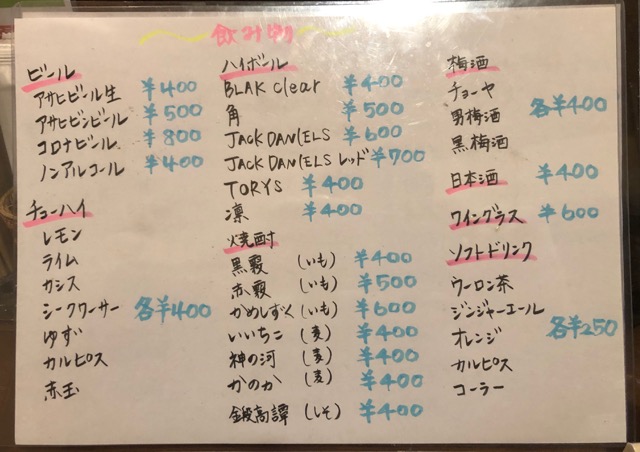 飲み物
ビール
アサヒビール生 ¥400
アサヒビンビール ¥500
コロナビール ¥800
ノンアルコール ¥400
チューハイ
レモン
ライム
カシス
シークワーサー 各¥400
ゆず
カルピス
赤玉
ハイボール
BLAK clear ¥400
角 ¥500
JACK DANIELS ¥600
JACK DANIELS レッド ¥700
TORYS ¥400
凛 ¥400
焼酎
黒霧 (いも) ¥400
赤霧 (いも) ¥500
かめしずく (いも) ¥600
いいちこ (麦) ¥400
神の河 (麦) ¥400
かのか (麦) ¥400
鍛高譚 (しそ) ¥400
梅酒
チョーヤ
男梅酒 各¥400
黒梅酒
日本酒 ¥400
ワイングラス ¥600
ソフトドリンク
ウーロン茶
ジンジャーエール
オレンジ 各¥250
カルピス
コーラー